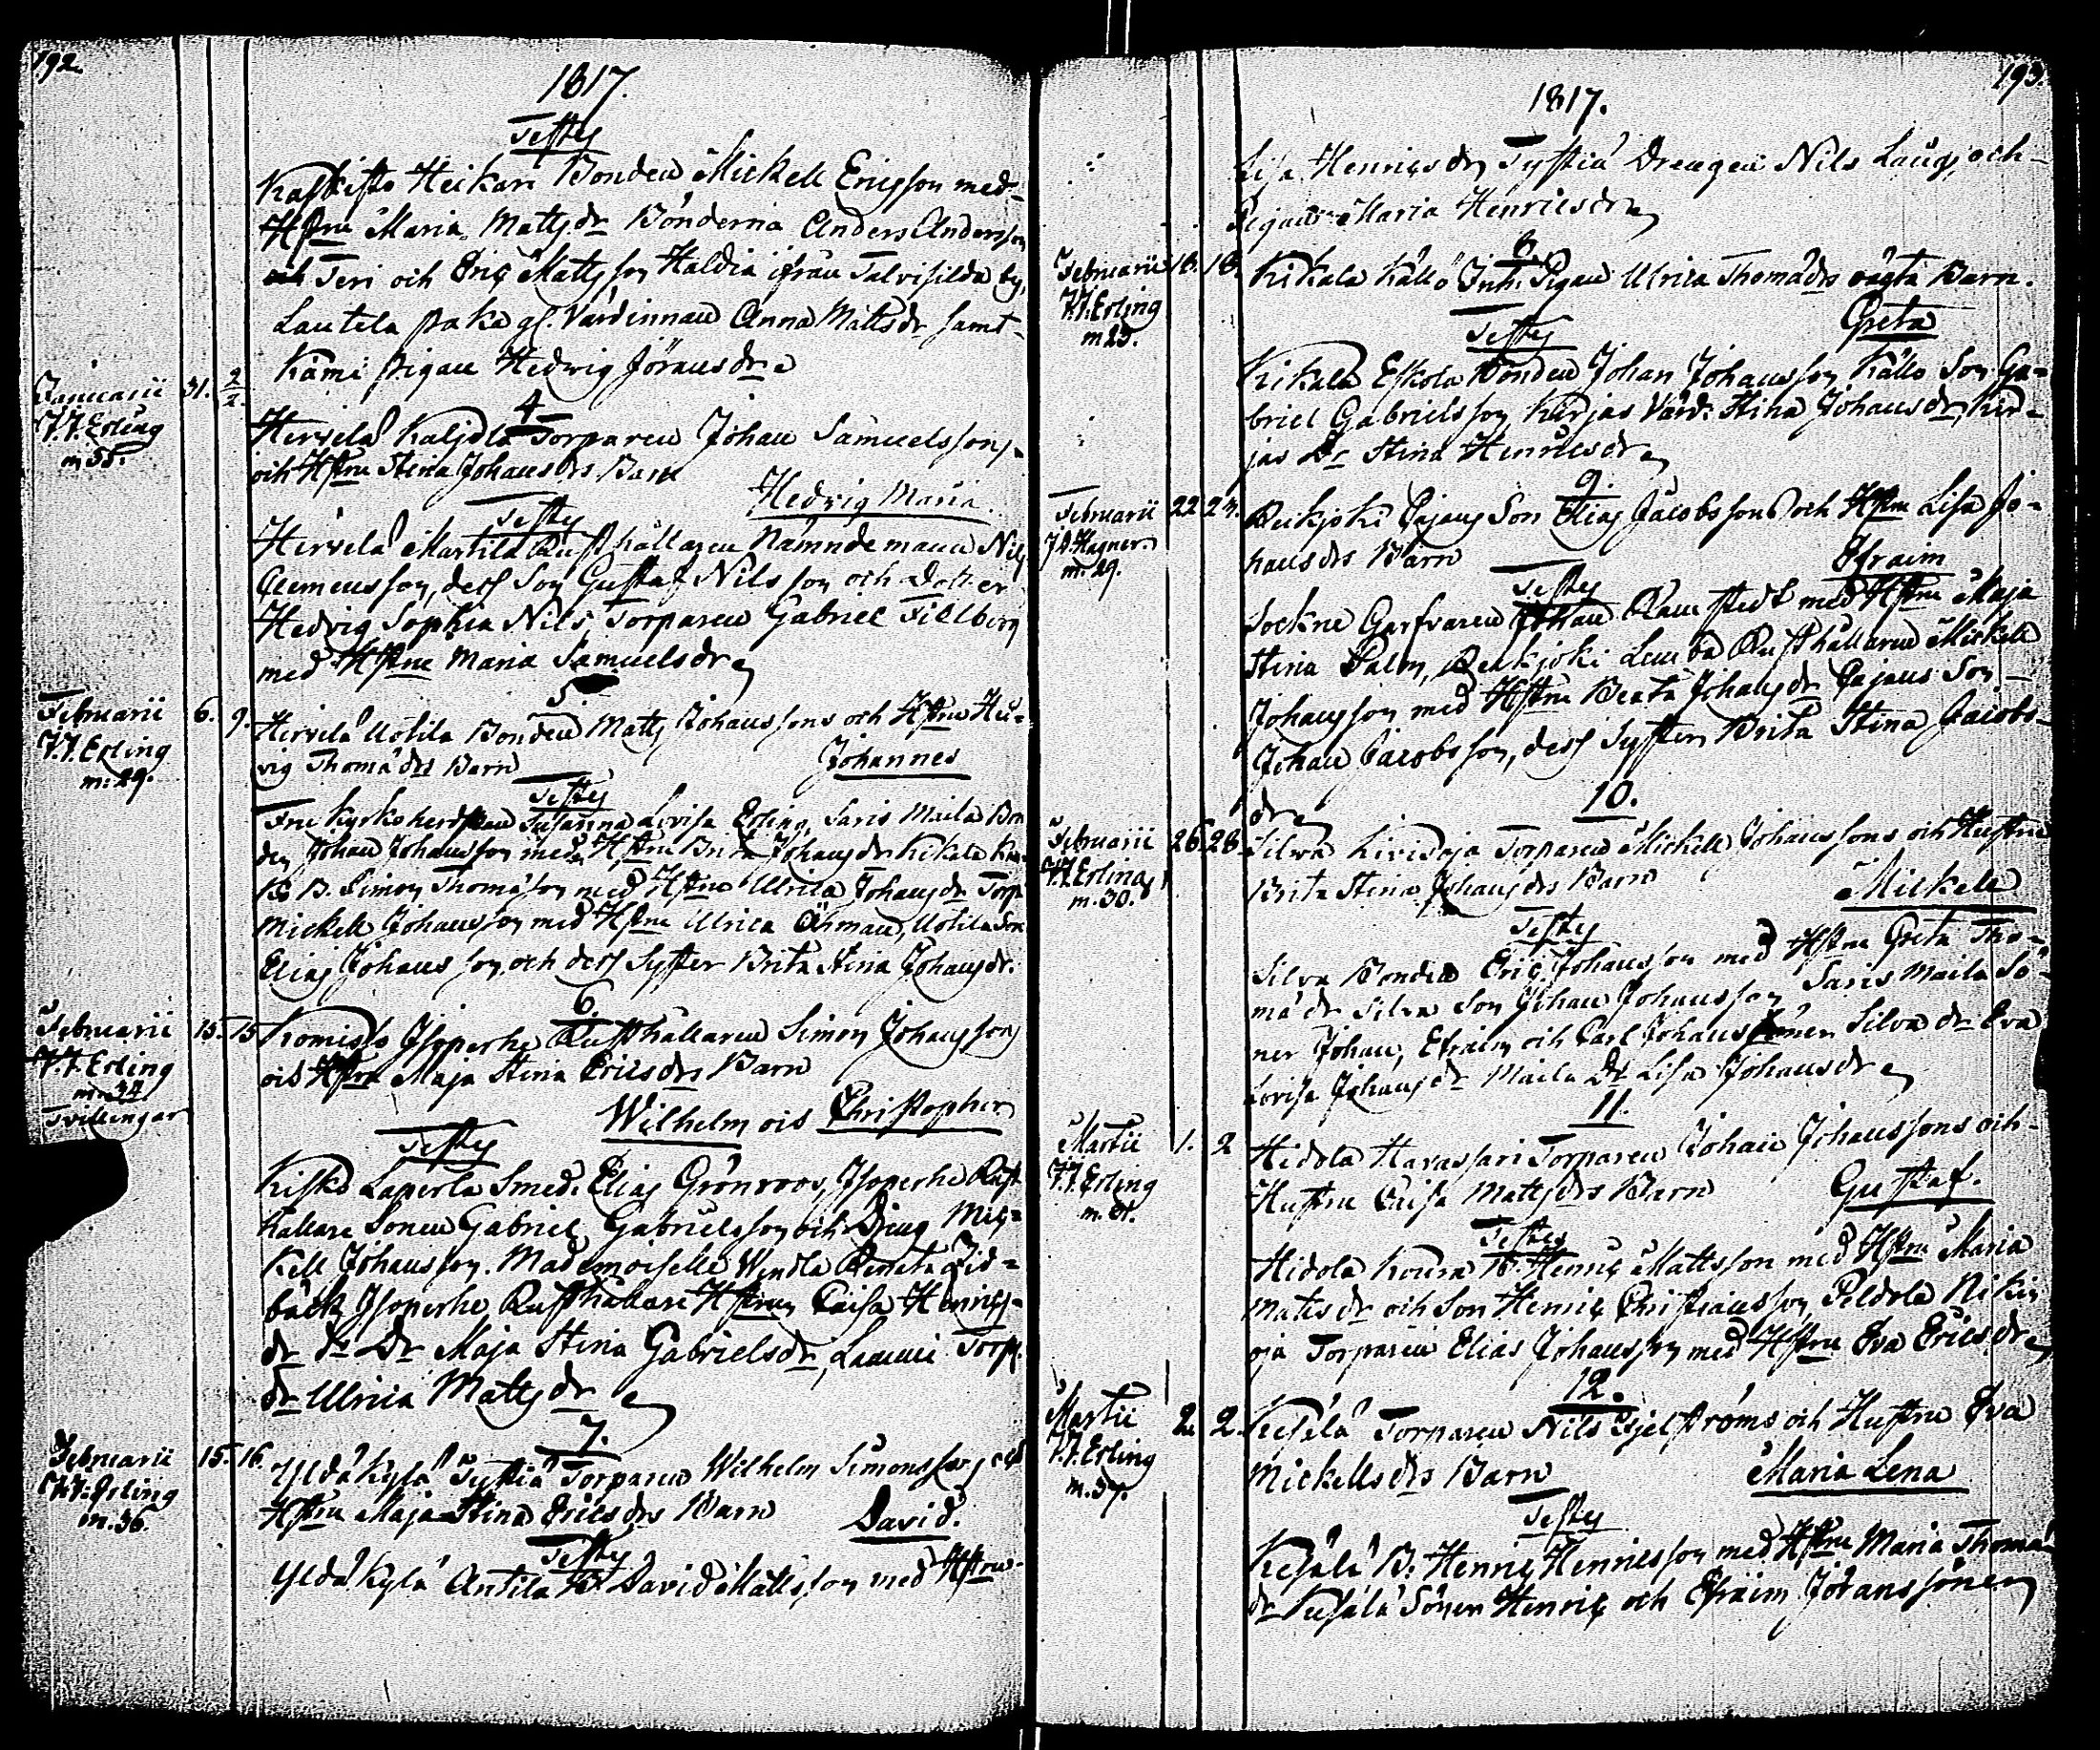 192.
1817.
Testes
Kaskisto Heikari Bonden Mickell Ericsson med
Hstru Maria Mattsdr Bönderna Anders Andersson
och Teri och Eric Mattsson Haldia ifrån Talvisilda by,
Lautela gl. Värdinnan Anna Mattsdr samt
Kämi pigan Hedvig Jöransdr
Januarii 31. 2/2.
J.J. Erling
m 35.
4
Hirvelä Kaljola Torparen Johan Samuelssons
och Hstru Stina Johansdrs Barn
Hedvig Maria.
Testes
Hirvelä Martila Rusthållaren Nämndemann Nils
Clemensson, dess Son Gustaf Nilsson och Dotter
Hedvig Sophia Nils, Torparen Gabriel Tillberg
med Hstru Maria Samuelsdr
Februarii 6. 9.
J.J. Erling
m: 29.
5
Hirvelä Uotila Bonden Matts Johanssons och Hstru Hed=
vig Thomædrs Barn
Johannes
Testes
Fru Kyrkoherdskan Susanna Lovisa Erling, Saris Maila Bon
den Johan Johansson med Hstru Brita Johansdr Kikala
B. Simon Thomasson med Hstru Ulrica Johansdr Torp.
Mickell Johansson med Hstru Ulrica Öhman, Uotila Son
Elias Johansson och dess Syster Brita Stina Johansdr.
Februarii 15. 15
J.J. Erling
m. 34
Tvillingar
6.
Komisto Isoperhe Rusthållaren Simon Johansson
och Hstru Maja Stina Ericsdrs Barn
Wilhelm och Christopher
Testes
Kisko Laperla Smed. Elias Grönroos, Isoperhe Rust
hållare Sonen Gabriel Gabrielsson och Dreng Mic=
kell Johansson. Mademoiselle Wendla Renata Lid=
bäck Isoperhe Rusthållare Hstrun Caisa Henrics=
dr Dr Maja Stina Gabrielsdr, Lammi Torp.
dr Ulrica Mattsdr
Februarii 15. 16.
J.J. Erling
m. 36.
7.
Yldäkylä Tystiä Torparen Wilhelm Simonsson och
Hstru Maja Stina Ericsdrs Barn
David.
Testes
Yldäkylä Antila B. David Mattsson med Hstru
193.
1817.
Lisa Henricsdr, Tystiä Drengen Nils Laugs och
Pigan Maria Henricsdr
Februarii 16. 16.
J.J. Erling
m 23.
8.
Kikala Källo Inh. Pigan Ulrica Thomædrs oägta Barn.
Greta
Testes
Kikala Eskola Bonden Johan Johansson, Källo Son Ga=
briel Gabrielsson, Kirjas Värd: Stina Johansdr, Kir=
jas Dr Stina Henricsdr
Februarii 22 23.
J. A. Hagner.
m. 29.
9.
Reikjoki Pajans Son Elias Jacobssons och Hstru Lisa Jo=
hansdrs Barn
Efraim
Testes
Sockne Garfvaren Johan Ramstedt med Hstru Maja
Stina Palm, Reikjoki Lemba Rusthållaren Mickell
Johansson med Hstru Beata Johansdr Pajans Son
Johan Jacobsson, dess Syster Brita Stina Jacobs=
dr
Februarii 26 28
J.J. Erling
m. 30.
10.
Silva Torparen Mickell Johanssons och Hustru
Brita Stina Johansdrs Barn
Mickell
Testes
Silva Bonden Eric Johansson med Hstru Greta Tho=
mædr Silva Son Johan Johansson Saris Maila Sö=
ner Johan, Efraim och Carl Johanssöner Silva dr Eva
Lovisa Johansdr Maila Dr Lisa Johansdr
Martii 1. 2
J.J. Erling
m. 31.
11.
Hidola Harassari Torparen Johan Johanssons och
Hustru Caisa Mattsdrs Barn
Gustaf.
Testes
Hidola Koura B. Henric Mattsson med Hstru Maria
Matsdr och Son Henric Christiansson, Peldola Nikin
oja Torparen Elias Johansson med Hstru Eva Ericsdr
Martii 2. 2.
J.J. Erling
m. 37.
12.
Kesälä Torparen Nils Hjelströms och Hustru Eva
Mickellsdrs Barn
Maria Lena
Testes
Kesälä B: Henric Henricsson med Hstru Maria Thomæ
dr Kesälä Söner Henric och Efraim Johanssöner